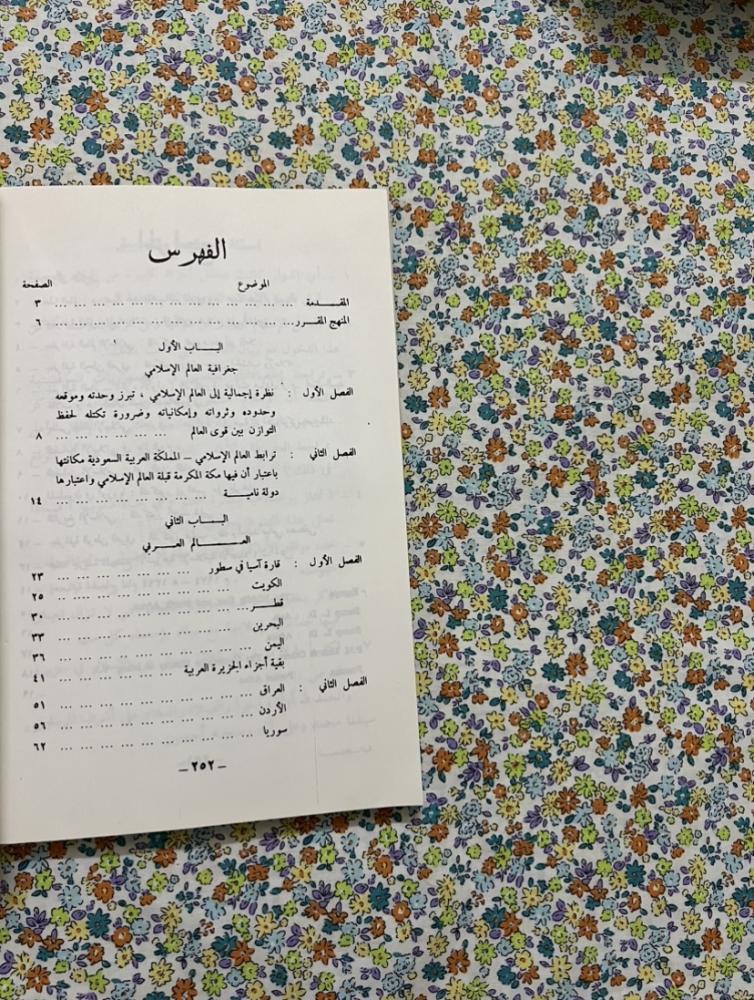 الفهرس
الموضوع الصفحة
المقدمة ... ... ... ... ... ... ... ... ... ٣
المنهج المقرر ... ... ... ... ... ... ... ... ... ٦
الباب الأول
جغرافية العالم الإسلامي
الفصل الأول : نظرة إجمالية إلى العالم الإسلامي ، تبرز وحدته وموقعه
وحدوده وثرواته وإمكانياته وضرورة تكتله لحفظ
التوازن بين قوى العالم ... ... ... ... ... ... ٨
الفصل الثاني : ترابط العالم الإسلامي – المملكة العربية السعودية مكانتها
باعتبار أن فيها مكة المكرمة قبلة العالم الإسلامي واعتبارها
دولة نامية ... ... ... ... ... ... ... ١٤
الباب الثاني
العالم العربي
الفصل الأول : قارة آسيا في سطور ... ... ... ... ... ... ... ٢٣
الكويت ... ... ... ... ... ... ... ... ٢٥
قطر ... ... ... ... ... ... ... ... ٣٠
البحرين ... ... ... ... ... ... ... ... ٣٣
اليمن ... ... ... ... ... ... ... ... ٣٦
بقية أجزاء الجزيرة العربية ... ... ... ... ... ٤١
الفصل الثاني : العراق ... ... ... ... ... ... ... ... ٥١
الأردن ... ... ... ... ... ... ... ... ٥٦
سوريا ... ... ... ... ... ... ... ... ٦٢
– ٢٥٢ –